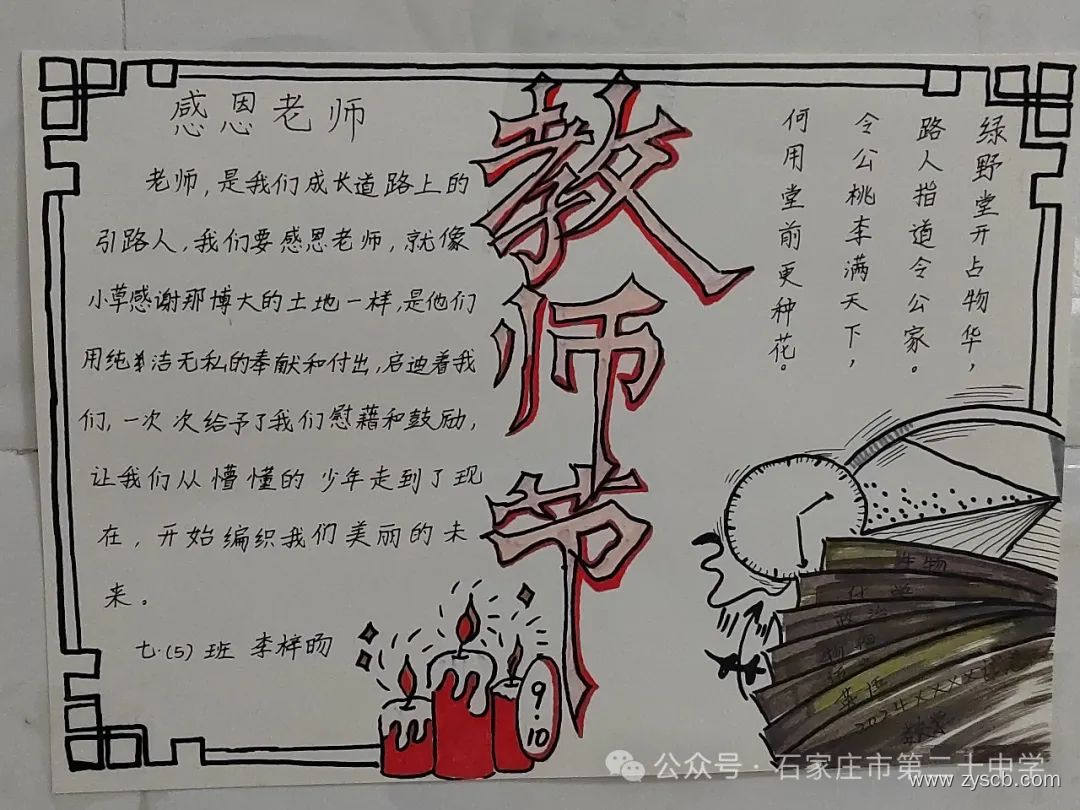 感恩老师
老师，是我们成长道路上的
引路人，我们要感恩老师，就像
小草感谢那博大的土地一样，是他们
用纯洁无私的奉献和付出，启迪着我
们，一次次给予了我们慰藉和鼓励，
让我们从懵懂的少年走到了现
在，开始编织我们美丽的未
来。
七.(5)班 李梓旸
教师节
绿野堂开占物华，
路人指道令公家。
令公桃李满天下，
何用堂前更种花。
9.10
生物
化学
政治
物理
英语
2024xxxx
公众号·石家庄市第二十中学
www.zyscb.com